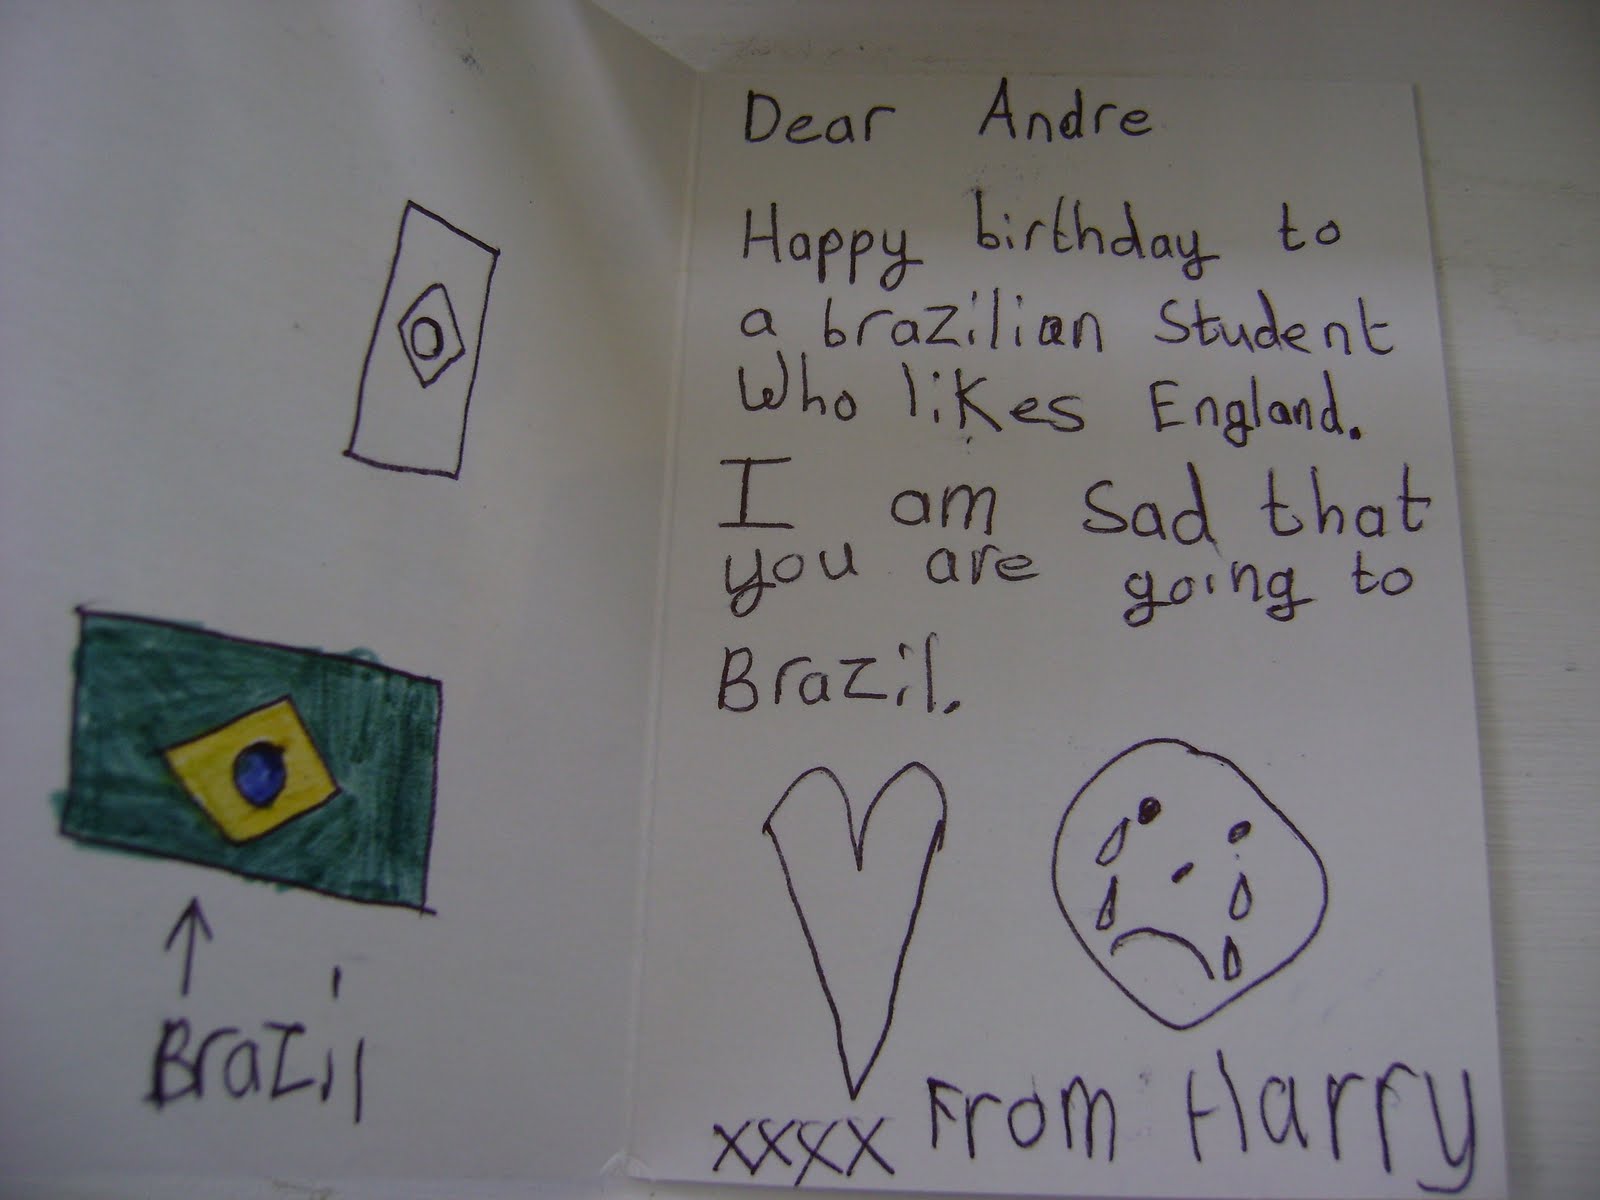 Dear Andre
Happy birthday to
a brazilian Student
Who likes England.
I am Sad that
you are going to
Brazil.
xxxx From Harry
Brazil